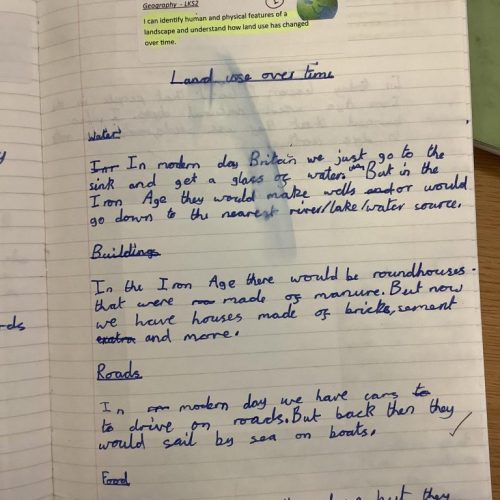 Geography - LKS2
I can identify human and physical features of a
landscape and understand how land use has changed
over time.
Land use over time
Water
In modern day Britain we just go to the
sink and get a glass of water. But in the
Iron Age they would make wells or would
go down to the nearest river/lake/water source.
Buildings
In the Iron Age there would be roundhouses
that were made of manure. But now
we have houses made of bricks, sement
extra and more.
Roads
In modern day we have cars to
to drive on roads. But back then they
would sail by sea on boats.
Food
but they
rds